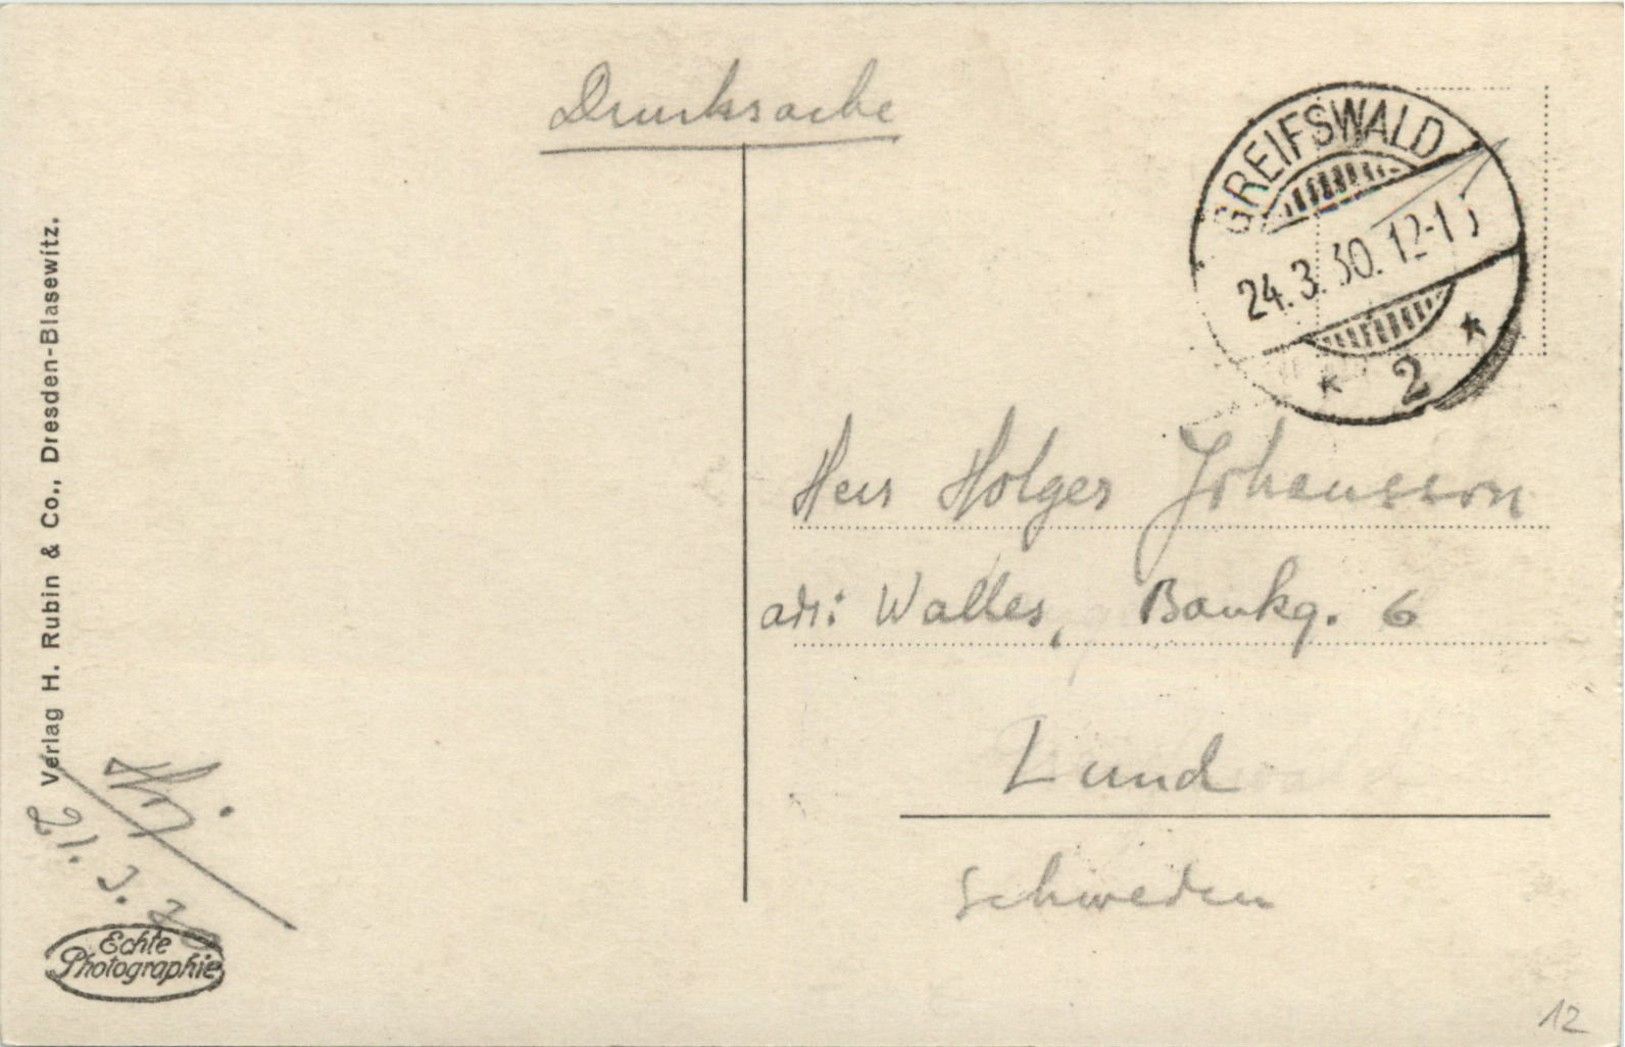 Drucksache
GREIFSWALD
24.3.30.12-1
* 2 *
Herr Holger Johansson
adr: Walles, Bankg. 6
Lund
Schweden
Verlag H. Rubin & Co., Dresden-Blasewitz.
21. 3.
Echte
Photographie
12